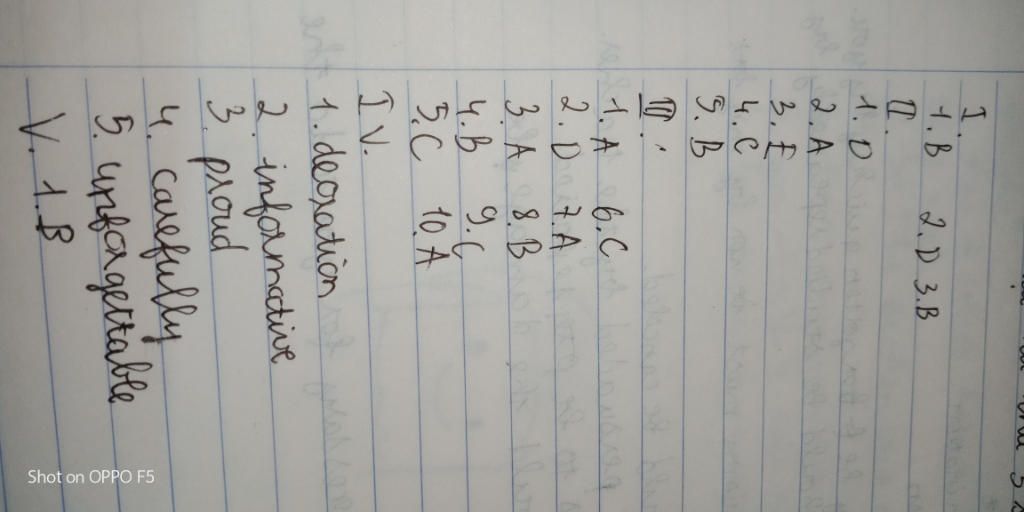 I.
1. B 2. D 3. B
II.
1. D
2. A
3. E
4. C
5. B
III.
1. A 6. C
2. D 7. A
3. A 8. B
4. B 9. C
5. C 10. A
IV.
1. decoration
2. informative
3. proud
4. carefully
5. unforgettable
V. 1. B
Shot on OPPO F5